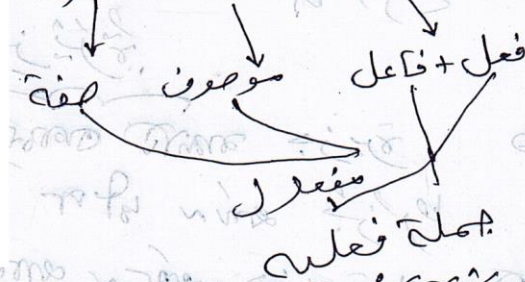 فعل + فاعل موصوف صفة
مفعول
جملة فعلية